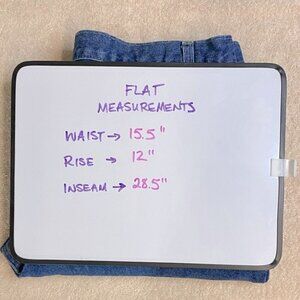 FLAT
MEASUREMENTS
WAIST → 15.5"
RISE → 12"
INSEAM → 28.5"